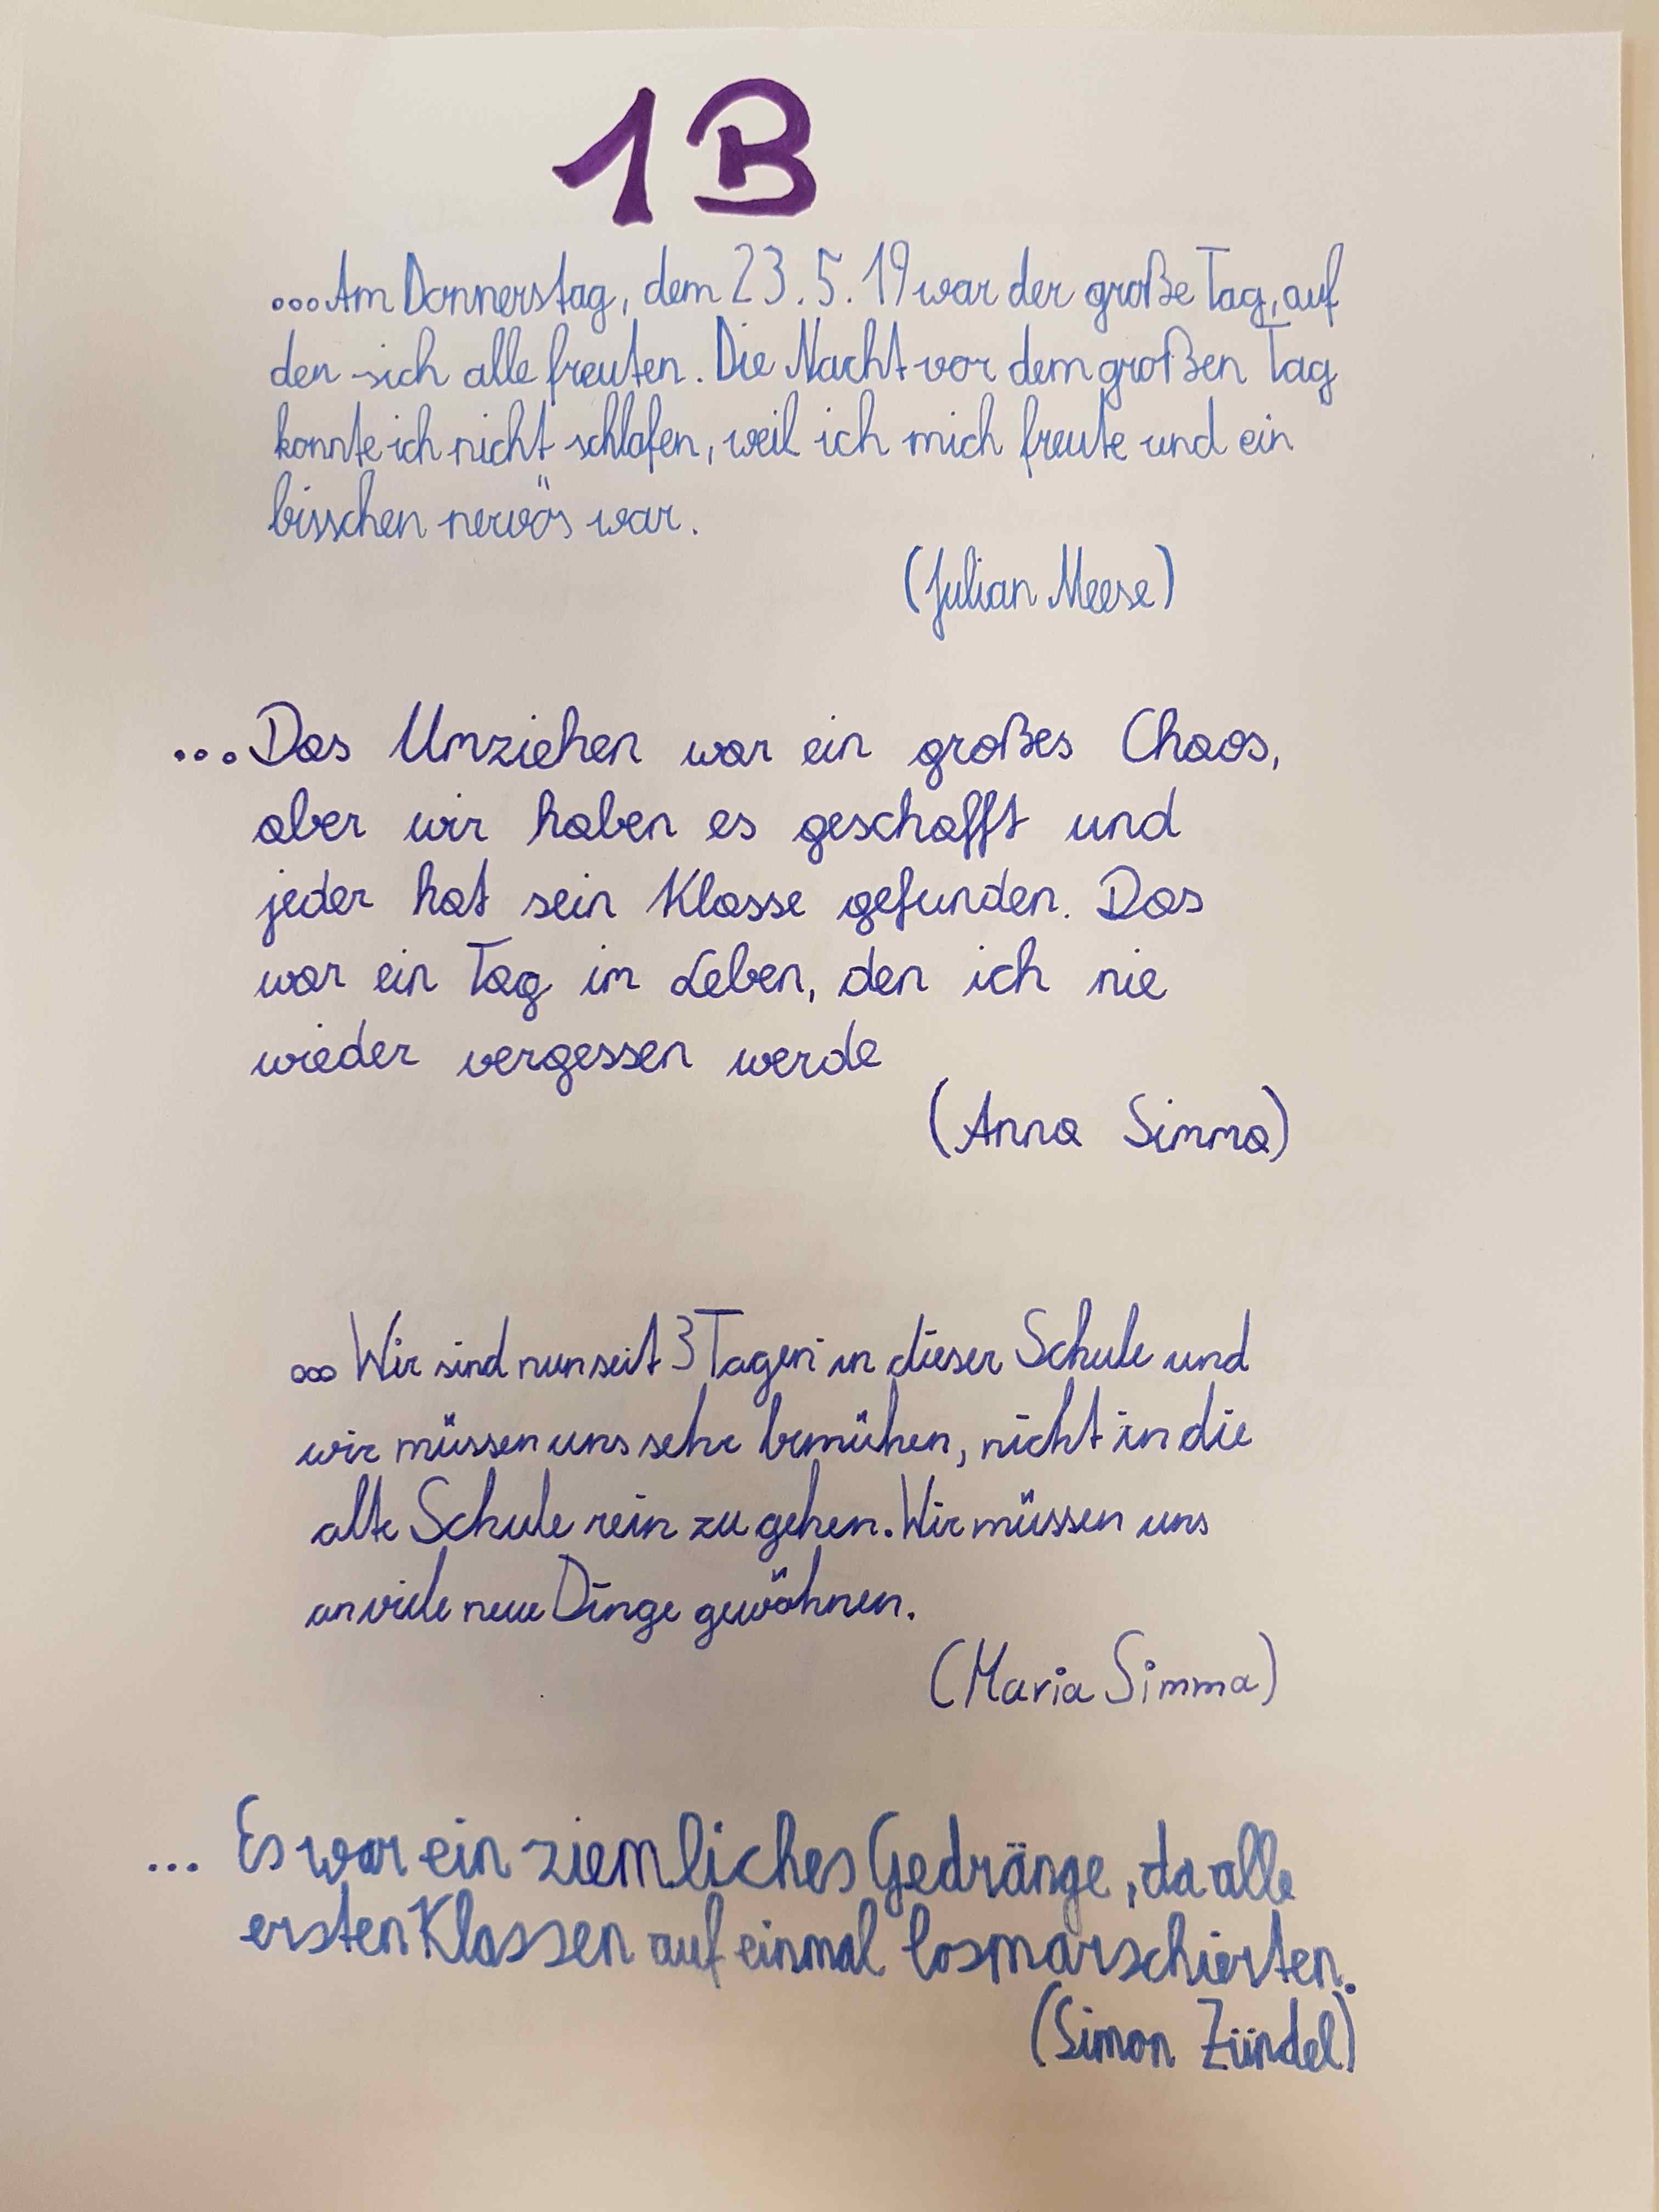 1B
...Am Donnerstag, dem 23.5.19 war der große Tag, auf
den sich alle freuten. Die Nacht vor dem großen Tag
konnte ich nicht schlafen, weil ich mich freute und ein
bisschen nervös war.
(Julian Meese)
...Das Umziehen war ein großes Chaos,
aber wir haben es geschafft und
jeder hat sein Klasse gefunden. Das
war ein Tag im Leben, den ich nie
wieder vergessen werde
(Anna Simma)
...Wir sind nun seit 3 Tagen in dieser Schule und
wir müssen uns sehr bemühen, nicht in die
alte Schule rein zu gehen. Wir müssen uns
an viele neue Dinge gewöhnen.
(Maria Simma)
... Es war ein ziemliches Gedränge, da alle
ersten Klassen auf einmal losmarschierten.
(Simon Zündel)